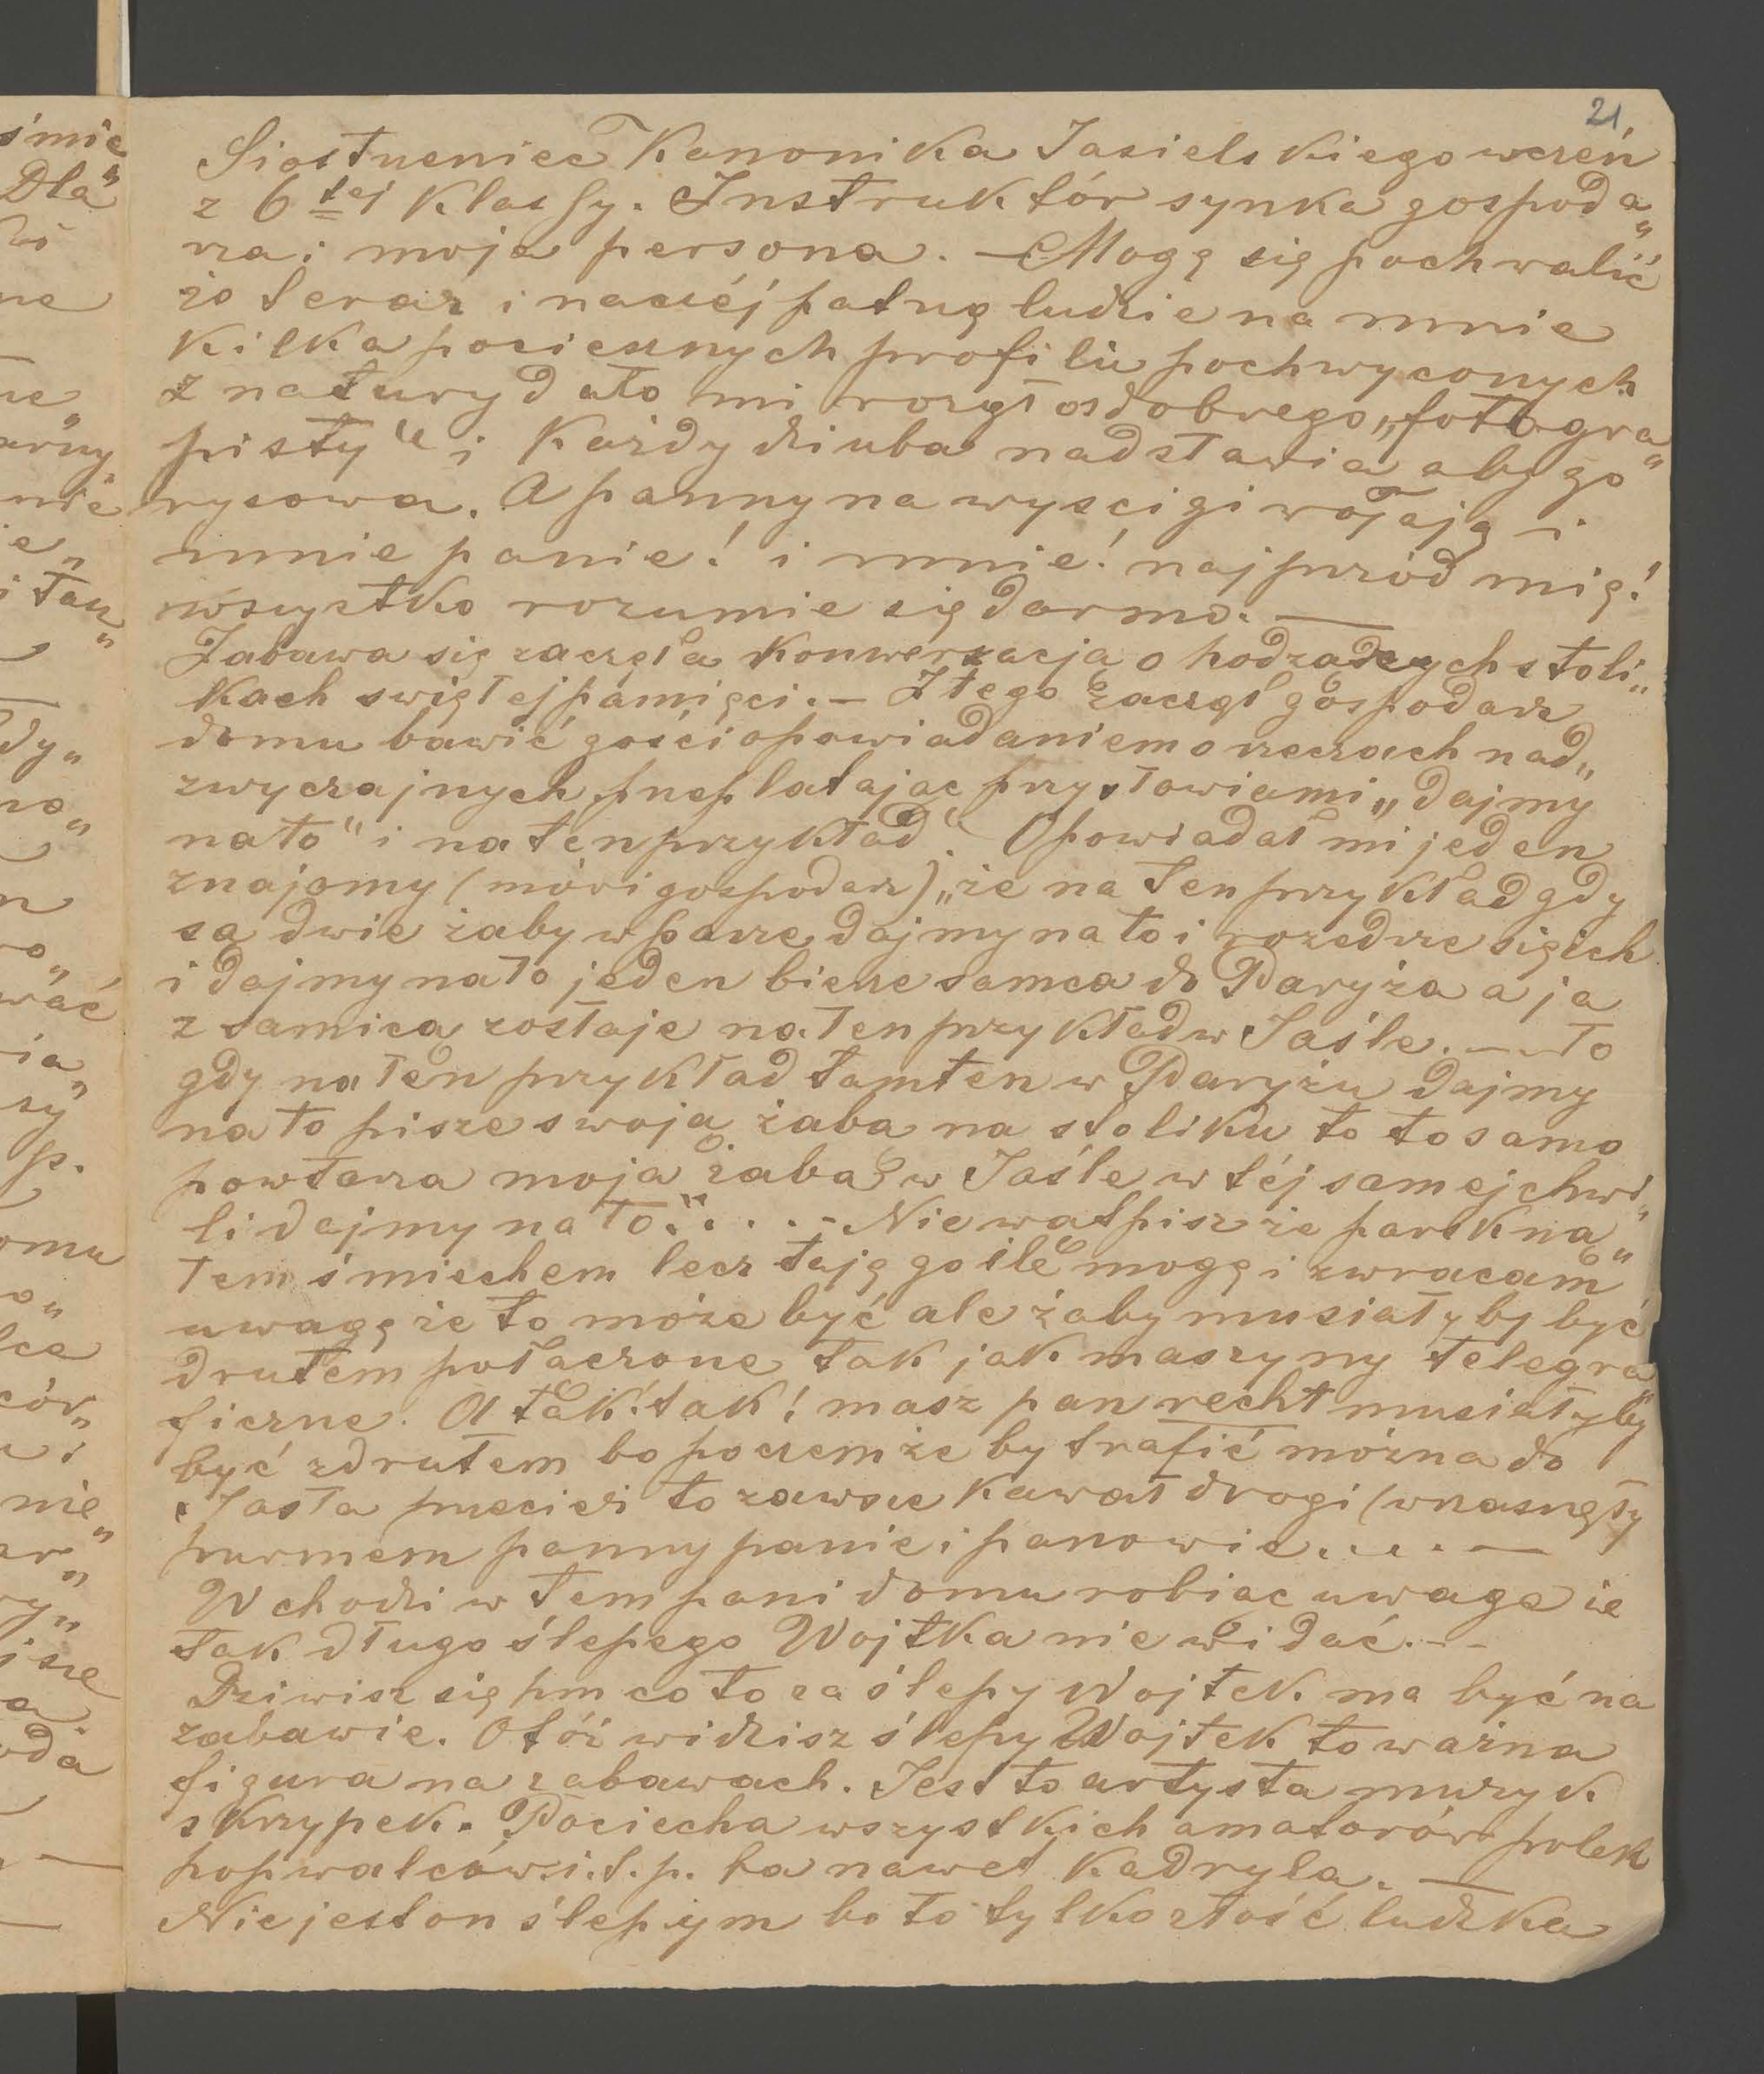 21
Siostrzeniec Kanonika Jasielskiego uczeń
z 6tej Klassy. Instruktór synka gospoda„
rza i moja persona. — Mogę się pochwalić
że teraz inaczéj patrzą ludzie na mnie
Kilka pociesznych profilu pochwyconych
z natury dało mi rozgłos dobrego „fotogra„
pisty" i Każdy dziuba nadstawia aby go
rysowa. A panny na wyscigi wołają i
mnie panie! i mnie! najprzód mię!
wszystko rozumie się darmo. —
Zabawa się zaczęła Konwersacja o hodzacych stoli„
Kach swiętej pamięci. — Z tego zaczął gospodarz
domu bawić gości opowiadaniem o rzeczach nad„
zwyczajnych, przeplatając przysłowiami „dajmy
na to" i na ten przykład". Opowiadał mi jeden
znajomy (mówi gospodarz) „że na ten przykład gdy
sa dwie żaby w parze dajmy na to i rozedrze się ich
i dajmy na to jeden bierze samca do Paryża a ja
z samica zostaje na ten przykład w Jaśle. — to
gdy na ten przykład tamten w Paryżu dajmy
na to pisze swoją żaba na stoliku to to samo
powtarza moja żaba w Jaśle w téj samej chwi„
li dajmy na to." . . . . - Nie watpisz że parskna„
łem śmiechem lecz taję go ile mogę i zwracam
uwagę że to może być ale żaby musiały by być
drutem połaczone tak jak maszyny telegra„
ficzne. A tak! tak! masz pan recht musiały by
być z drutem bo poczemże by trafić można do
Jasła przecież to zawsze kawał drogi (wrzasnęły
panny panie i panowie . . . . —
Wchodzi w tem pani domu robiac uwage że
tak długo ślepego Wojtka nie widać. - -
Dziwisz się hm co to za ślepy Wojtek ma być na
zabawie. Otóż widzisz ślepy Wojtek to ważna
figura na zabawach. Jest to artysta muzyk
skrzypek. Pociecha wszystkich amatorów polek
hop walców i. t. p. ba nawet Kadryla. —
Nie jest on ślepym bo to tylko złość ludzka